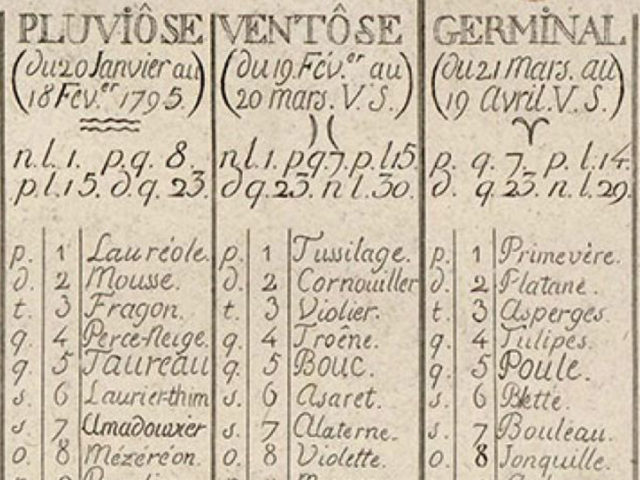 PLUVIÔSE
(du 20 Janvier au
18 Fév.er 1795.)
n.l.1. p.q. 8.
p.l.15. d q. 23.
p. 1 Lauréole.
d. 2 Mousse.
t. 3 Fragon.
q. 4 Perce-Neige.
q. 5 Taureau
s. 6 Laurier-thim
s. 7 Amadouvier
o. 8 Mézeréon.
VENTÔSE
(du 19. Fév.er au
20 mars. V.S.)
nl.1. pq7. p.l15.
d q.23. n l.30.
p. 1 Tussilage.
d. 2 Cornouiller
t. 3 Violier.
q. 4 Troêne.
q. 5 Bouc.
s. 6 Asaret.
s. 7 Alaterne.
o. 8 Violette.
GERMINAL
(du 21 mars. au
19 Avril. V.S.)
p. q. 7. p. l.14.
d. q.23. n.l.29.
p. 1 Primevère.
d. 2 Platane.
t. 3 Asperges.
q. 4 Tulipes.
q. 5 Poule.
s. 6 Blette.
s. 7 Bouleau.
o. 8 Jonquille.